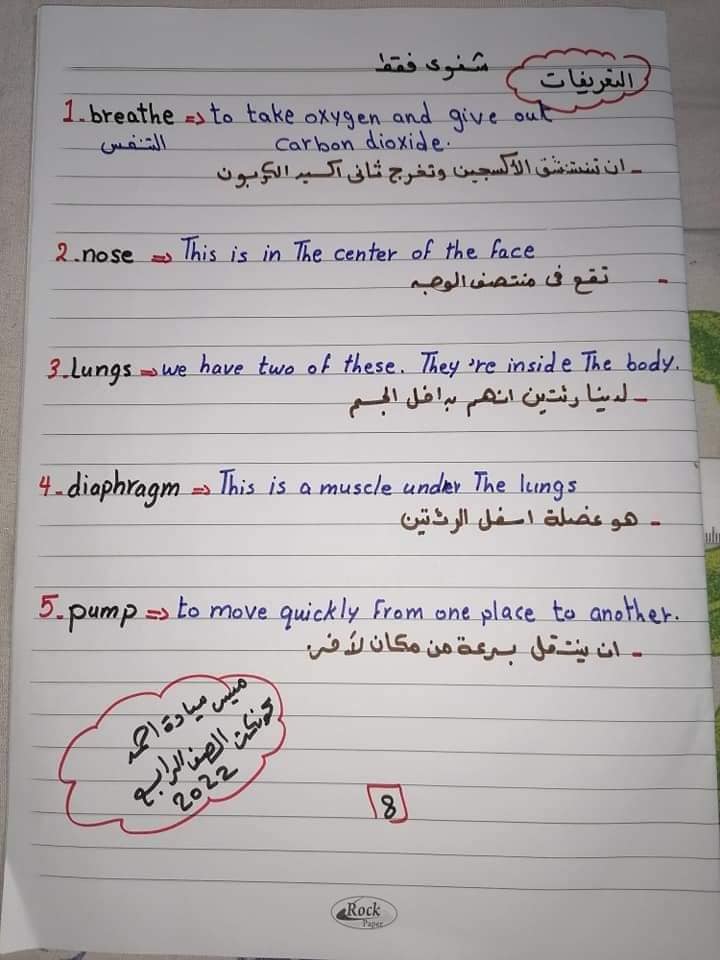 التعريفات شفوى فقط
1. breathe => to take oxygen and give out
التنفس carbon dioxide.
- ان تستنشق الأكسجين وتخرج ثانى اكسيد الكربون
2. nose => This is in The center of the face
- تقع فى منتصف الوجه
3. Lungs => we have two of these. They're inside The body.
- لدينا رئتين انهم بداخل الجسم
4. diaphragm => This is a muscle under The lungs
- هو عضلة اسفل الرئتين
5. pump => to move quickly From one place to another.
- ان ينتقل بسرعة من مكان لأخر.
ميس ميادة احمد
كونكت الصف الرابع
2022
8
Rock
Paper